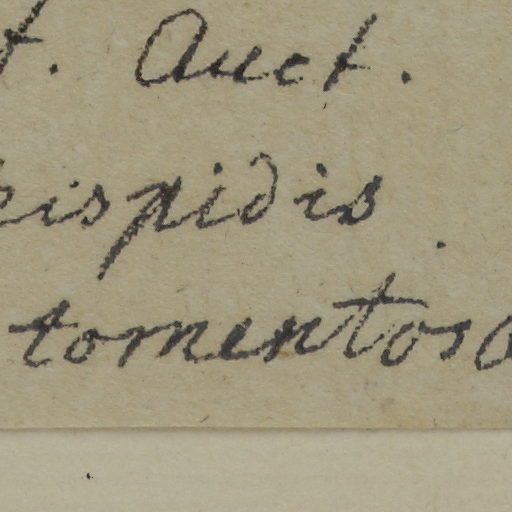 t. Auct.
hispidis
tomentosa